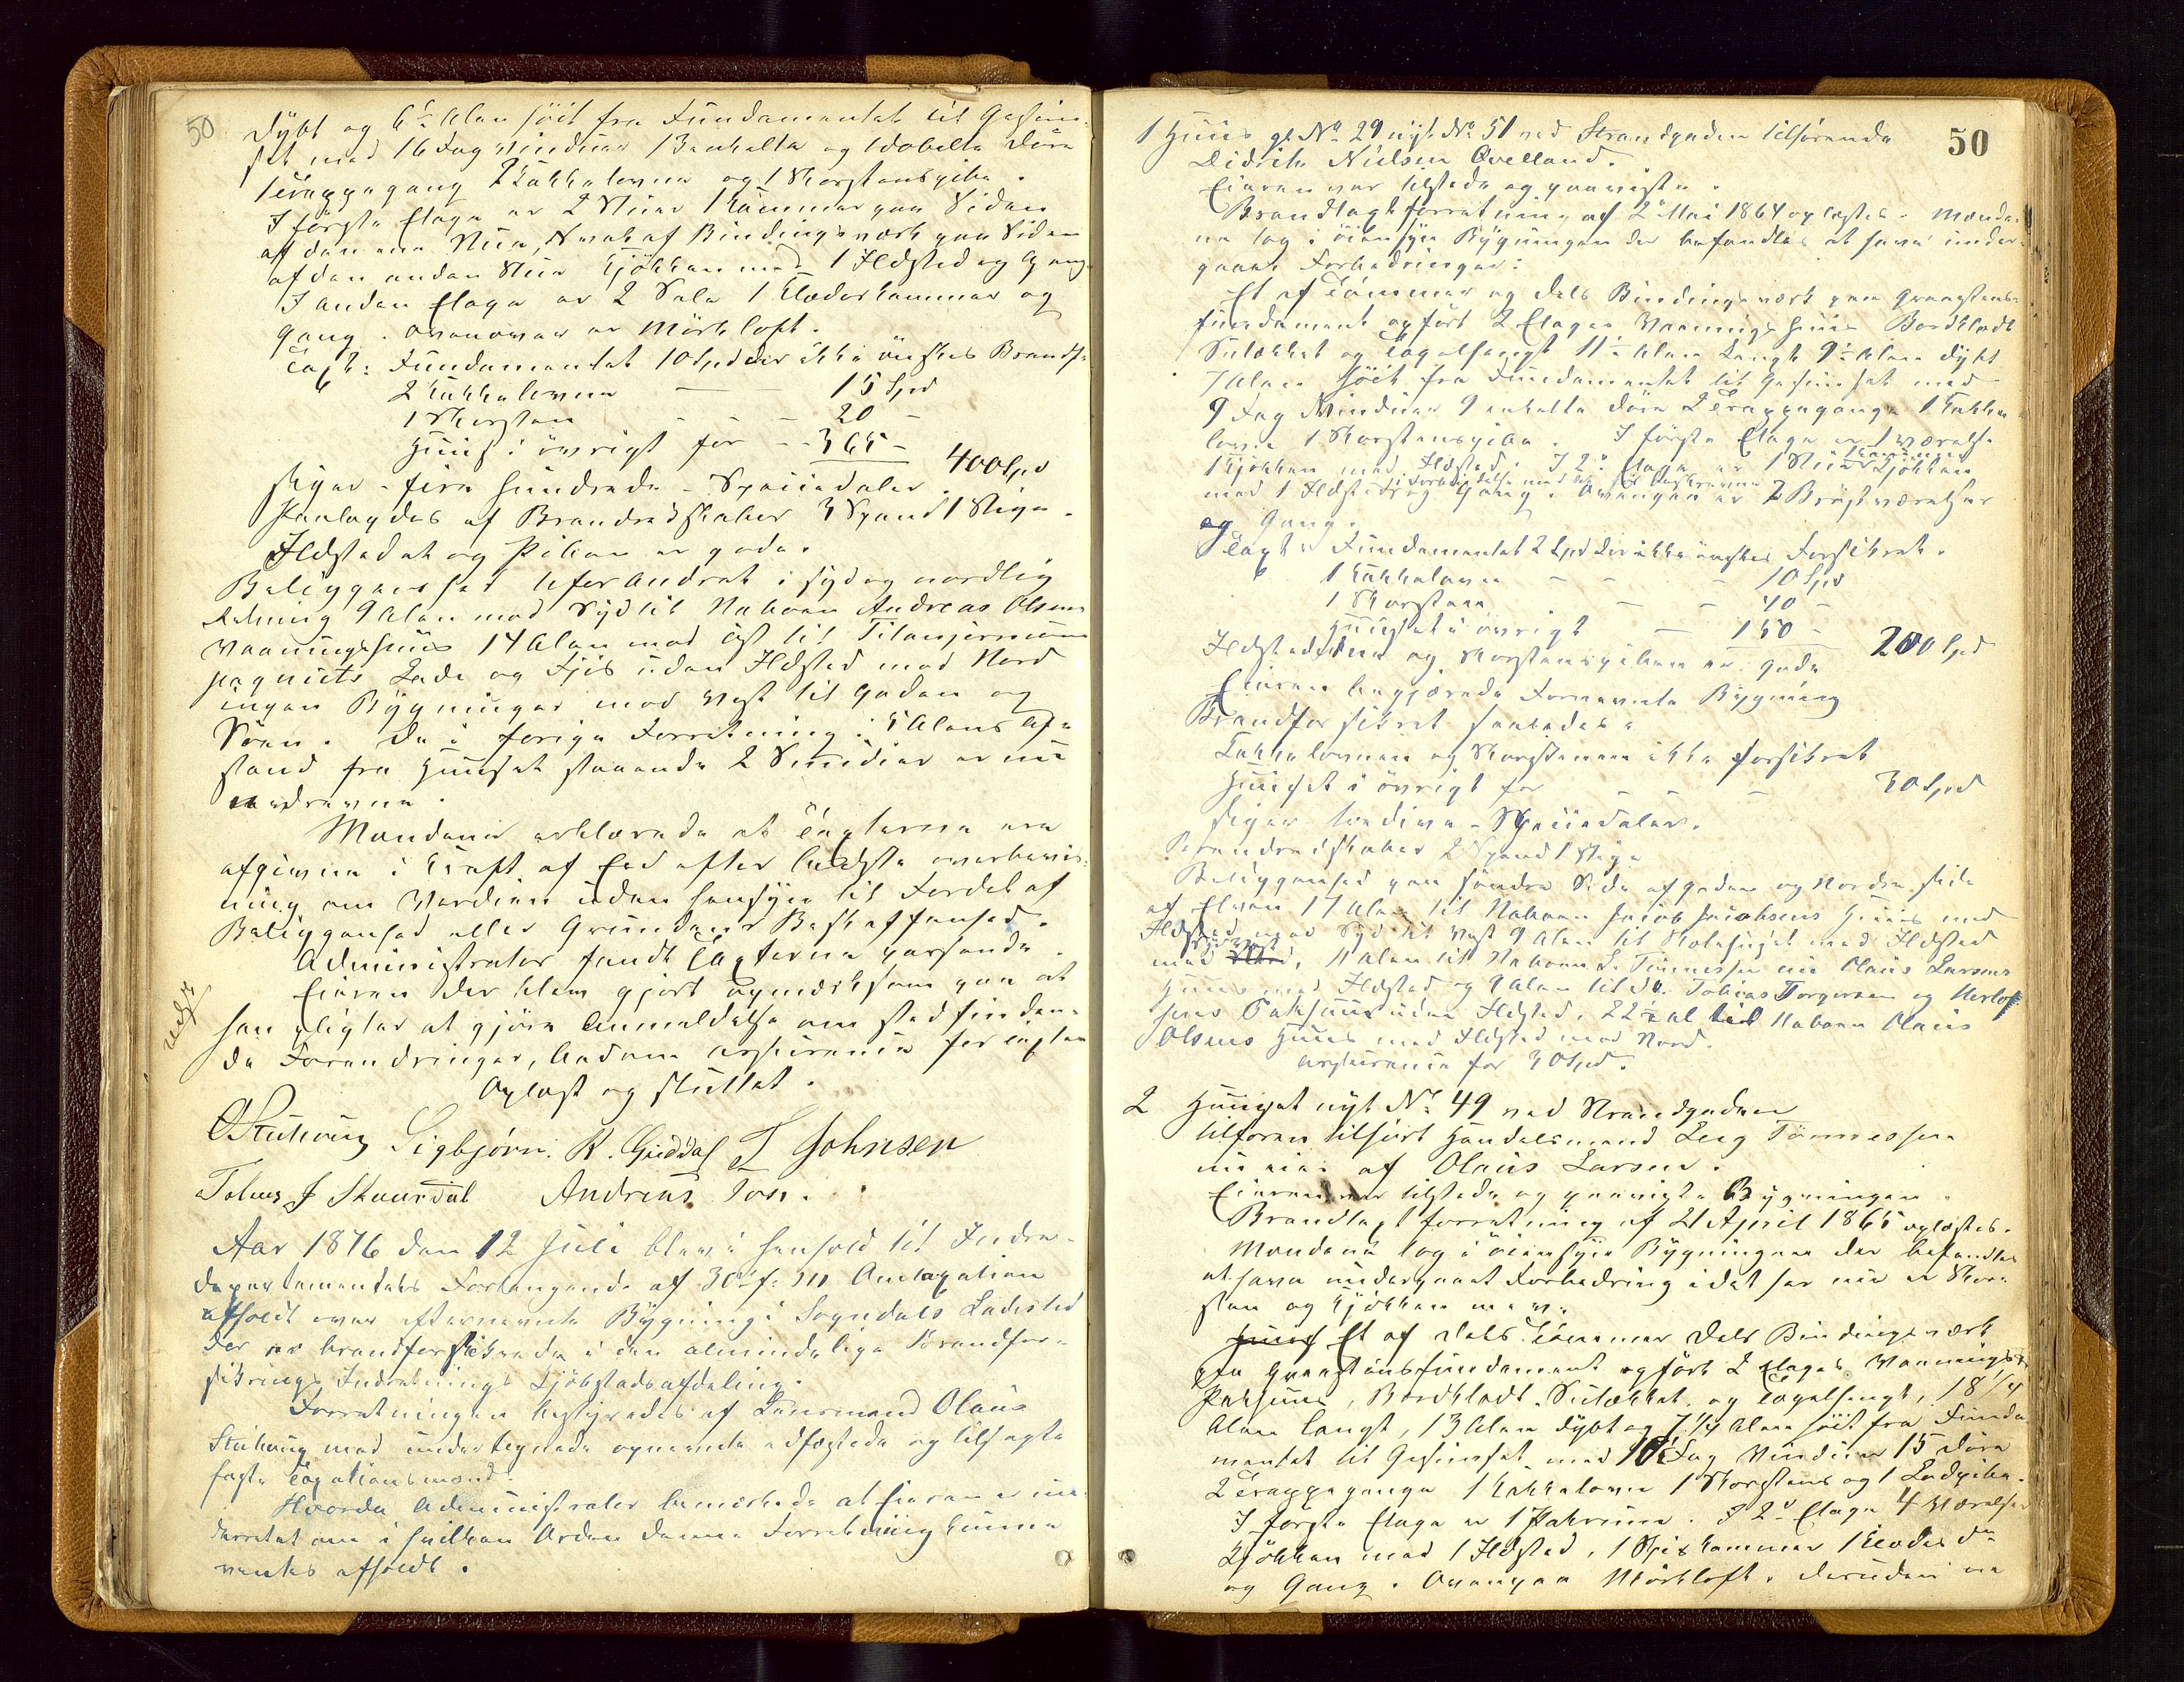 50
dybt og 6½ Alen höit fra Fundamentet til Gesim-
set med 16 Fag Vinduer 13 enkelte og 1 dobelte Döre
1 Trappegang 2 Kakkelovne og 1 Skorstenspibe.
I förste Etage er 2 Stuer 1 Kammer paa Siden
af den ene Stue, Sval af Bindingsværk paa Siden
af den anden Stue Kjökken med 1 Ildsted og Gang
I anden Etage er 2 Sale 1 Klædeskammer og
Gang. Ovenover er Mörkloft.
Taxt: Fundamentet 10 Spd der ikke önskes Brandf.
2 Kakkelovne — 15 Spd
1 Skorsten - - - 20 -
Huuset i övrigt for - - 365 - 400 Spd
siger - fire hundrede - Speciedaler.
Paalagdes af Brandredskaber 3 Spand 1 Stige.
Ildstedet og Piben er gode.
Beliggenhed uforandret i syd og nordlig
Retning 9 Alen mod Syd til Naboen Andreas Olsens
Vaaningshuus 14 Alen mod Öst til Titanjernkom-
pagniets Lade og Fjös uden Ildsted mod Nord
ingen Bygninger mod Vest til Gaden og
Söen. De i forige Forretning i 5 Alens Af-
stand fra Huuset staaende 2 Smidier er nu
nedrevne.
Mændene erklærede at Taxterne ere
afgivne i Kraft af Eed efter bedste overbevis-
ning om Værdien uden hensyn til Fordel af
Beliggenhed eller Grundens Beskaffenhed.
Administrator fandt Taxterne passende.
Eieren der blev gjort opmærksom paa at
han pligter at gjöre Anmeldelse om stedfinden-
de Forandringer, bedeme Assurance for taxten
Oplæst og sluttet.
OStuhoug Sigbjørn. R. Guddal T Johnsen
Tobias J Skaardal Andreas Tos.
Aar 1876 den 12 Juli blev i henhold til Indre-
departementets Forlangende af 30te f: M Omtaxation
afholdt over efternævnte Bygning i Sogndals Ladested
der er brandforsikrede i den almindelige Brandfor-
sikrings Indretnings Kjöbstadsafdeling.
Forretningen bestyredes af Lensmand Olaus
Stuhoug med undertegnede opnævnte edfæstede og tilsagte
faste Taxationsmænd.
Hvorda Administrator bemærkede at Eieren er un-
derrettet om i hvilken Orden denne Forretning kunne
ventes afholdt.
50
1 Huus gl. No 29 nyt No 51 ved Strandgaden tilhörende
Didrik Nielsen Qvelland.
Eieren var tilstede og paaviste.
Brandtaxtforretning af 2den Mai 1864 oplæstes. Mænde-
ne tog i öiensyn Bygningen der befandtes at have under-
gaaet Forbedringer:
Et af Tömmer og dels Bindingsværk paa Graastens-
fundament opfört 2 Etages Vaaningshuus Bordklædt
Sutækket og Tagelhængt 11½ Alen Langt 9½ Alen dybt
7 Alen höit fra Fundamentet til Gesimset med
9 Fag Vinduer 9 enkelte Döre 2 Trappegange 1 Kakkel-
lovn 1 Skorstenspibe. I förste Etage er 1 Værelse
1 Kjökken med Ildsted. I 2den Etage er 1 Stue 1 Kammer Kjökken
med 1 Ildsted og Gang. Ovenpaa er 2 Bröstværelser
og Gang.
Taxt: Fundamentet 2 Spd der ikke önskes Forsikret.
1 Kakkelovn - - - 10 Spd
1 Skorsten - - 40 -
Huuset i övrigt — 150 - 200 Spd
Ildstederne og Skorstenspiben er gode
Eieren begjærede Fornævnte Bygning
Brandforsikret saaledes:
Kakkelovnen og Skorstenen ikke forsikret
Huuset i övrigt for - - - 30 Spd
siger tredive - Speciedaler.
Brandredskaber 2 Spand 1 Stige
Beliggenhed paa söndre Side af Gaden og Nordre side
af Elven 17 Alen til Naboen Jacob Jacobsens Huus med
Ildsted mod Syd til Vest 9 Alen til Skolehuset med Ildsted
mod Sydvest, 11 Alen til Naboen L. Tönnessen nu Olaus Larsens
Huus med Ildsted og 9 Alen til do. Tobias Torgersen og Herlof-
sens Pakhuus uden Ildsted, 22½ Al til Naboen Olaus
Olsens Huus med Ildsted mod Nord.
Assurance for 30 Spd.
2 Huuset nyt No 49 ved Strandgaden
tilforen tilhört Handelsmand Leag Tönnessen
nu eies af Olaus Larsen.
Eieren var tilstede og paaviste Bygningen.
Brandtaxtforretning af 21 April 1865 oplæstes.
Mændene tog i öiensyn Bygningen der befandtes
at have undergaaet Forbedring idet her nu er Skor-
sten og Kjökken m. v.
Et af dels Tömmer dels Bindingsværk
paa Graastensfundament opfört 2 Etages Vaanings &
Pakhuus, Bordklædt Sutækket og Tagelhængt, 18 1/4
Alen Langt, 13 Alen dybt og 7 1/4 Alen höit fra Funda-
mentet til Gesimset med 10 Fag Vinduer 15 Döre
2 Trappegange 1 Kakkelovn 1 Skorstens og 1 Ladpibe.
I förste Etage er 1 Pakrum. I 2den Etage 4 Værelser
Kjökken med 1 Ildsted, 1 Spiskammer 1 Klædes do
og Gang. Ovenpaa Mörkloft. desuden er